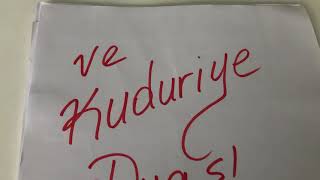 ve
Kuduriye
Duası